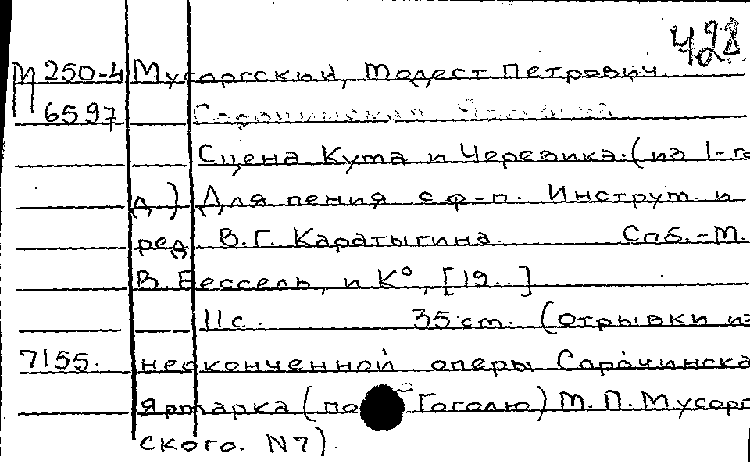 428
М 250-4 Мусоргский, Модест Петрович.
6597 Сорочинская Ярмарка
Сцена Кума и Черевика. (из 1-го
д.) Для пения с ф-п. Инструт. и
ред. В.Г. Каратыгина. Спб.-М.
В. Бессель, и К°, [19..]
11с. 35 cm. (отрывки из
7155. неоконченной оперы Сорочинска
Ярмарка (по Гоголю) М.П. Мусорг
ского. N7).